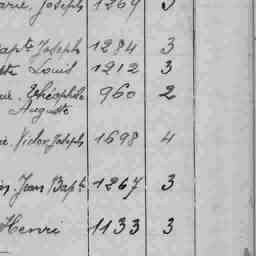 Joseph 1269 3
Bapte Joseph 1284 3
Louis 1212 3
Théophile 960 2
Auguste
Victor Joseph 1698 4
Jean Bapt. 1267 3
Henri 1133 3